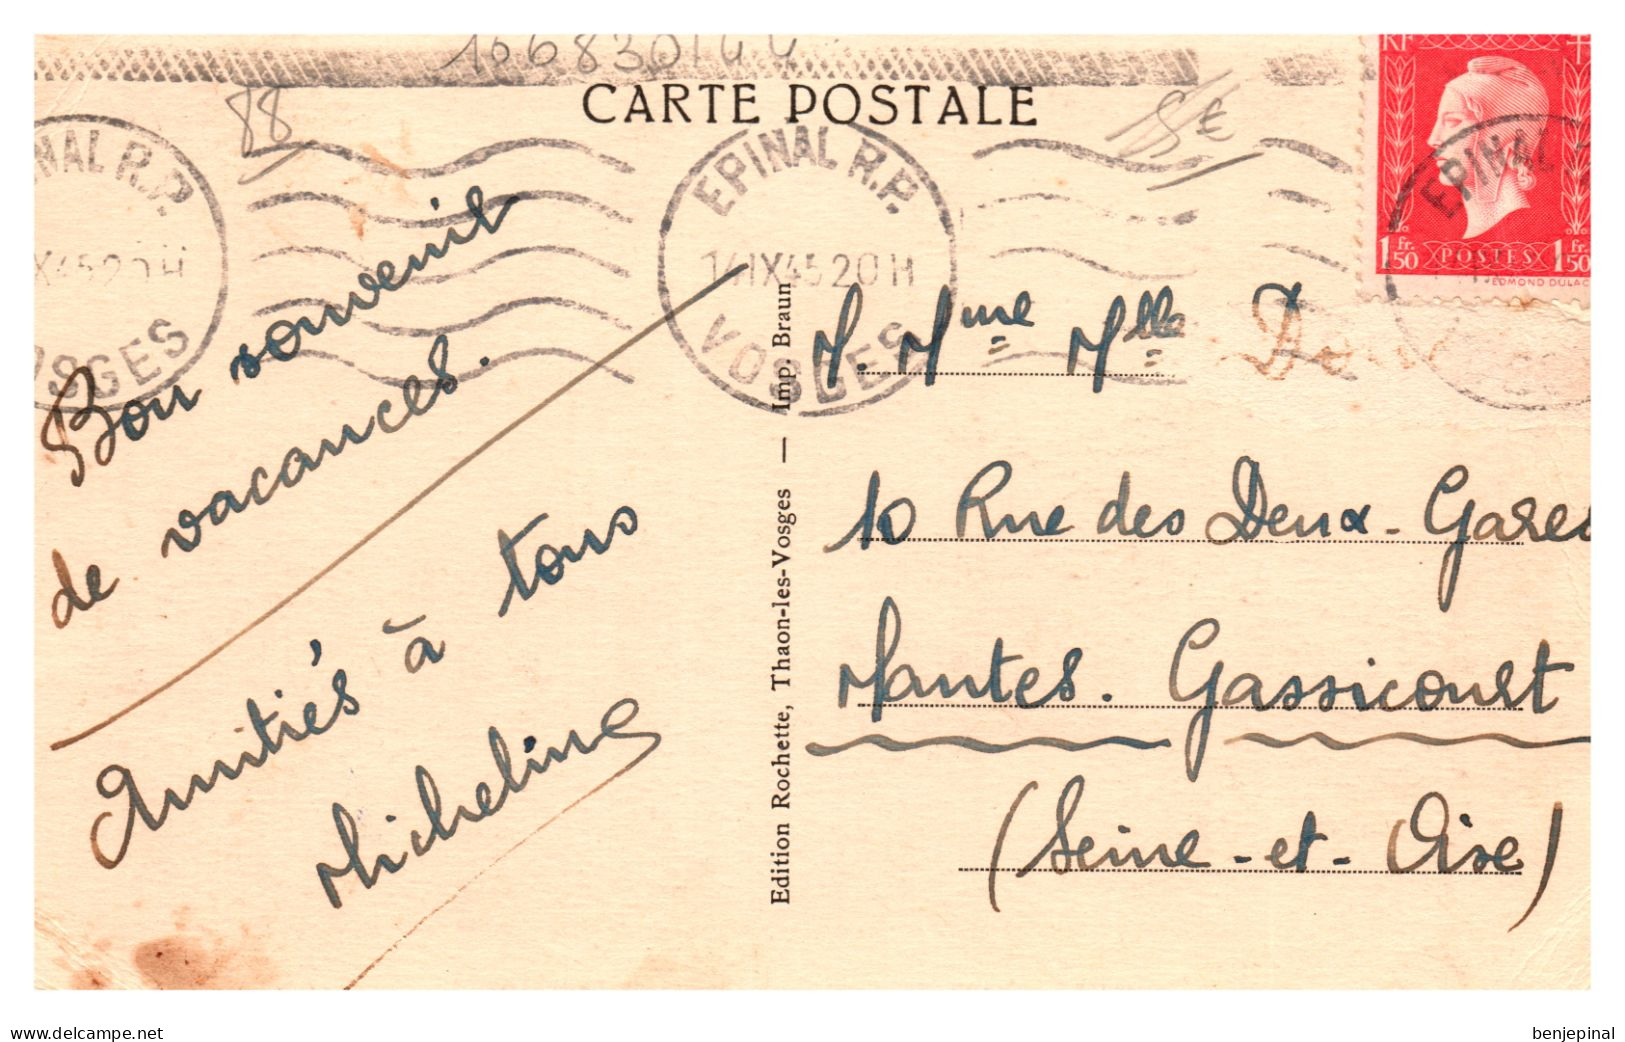 10683014 4
88
5€
CARTE POSTALE
RF
1 Fr. 50 POSTES 1 Fr. 50
EDMOND DULAC
EPINAL
EPINAL R.P.
14 IX 45 20 H
VOSGES
NAL R.P.
X 45 20 H
OSGES
Bon souvenir
de vacances.
Amitiés à tous
Micheline
Edition Rochette, Thaon-les-Vosges — Imp. Braun
M. Mme Mlle
10 Rue des Deux-Gares
Mantes-Gassicourt
(Seine-et-Oise)
www.delcampe.net
benjepinal